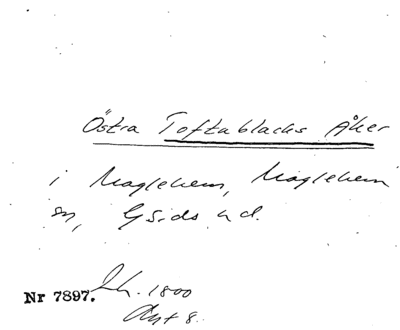 Östra Toftablacks Åker
i Maglehem, Maglehem
sn, Gärds hd.
Nr 7897. Lh. 1800
Akt 8.